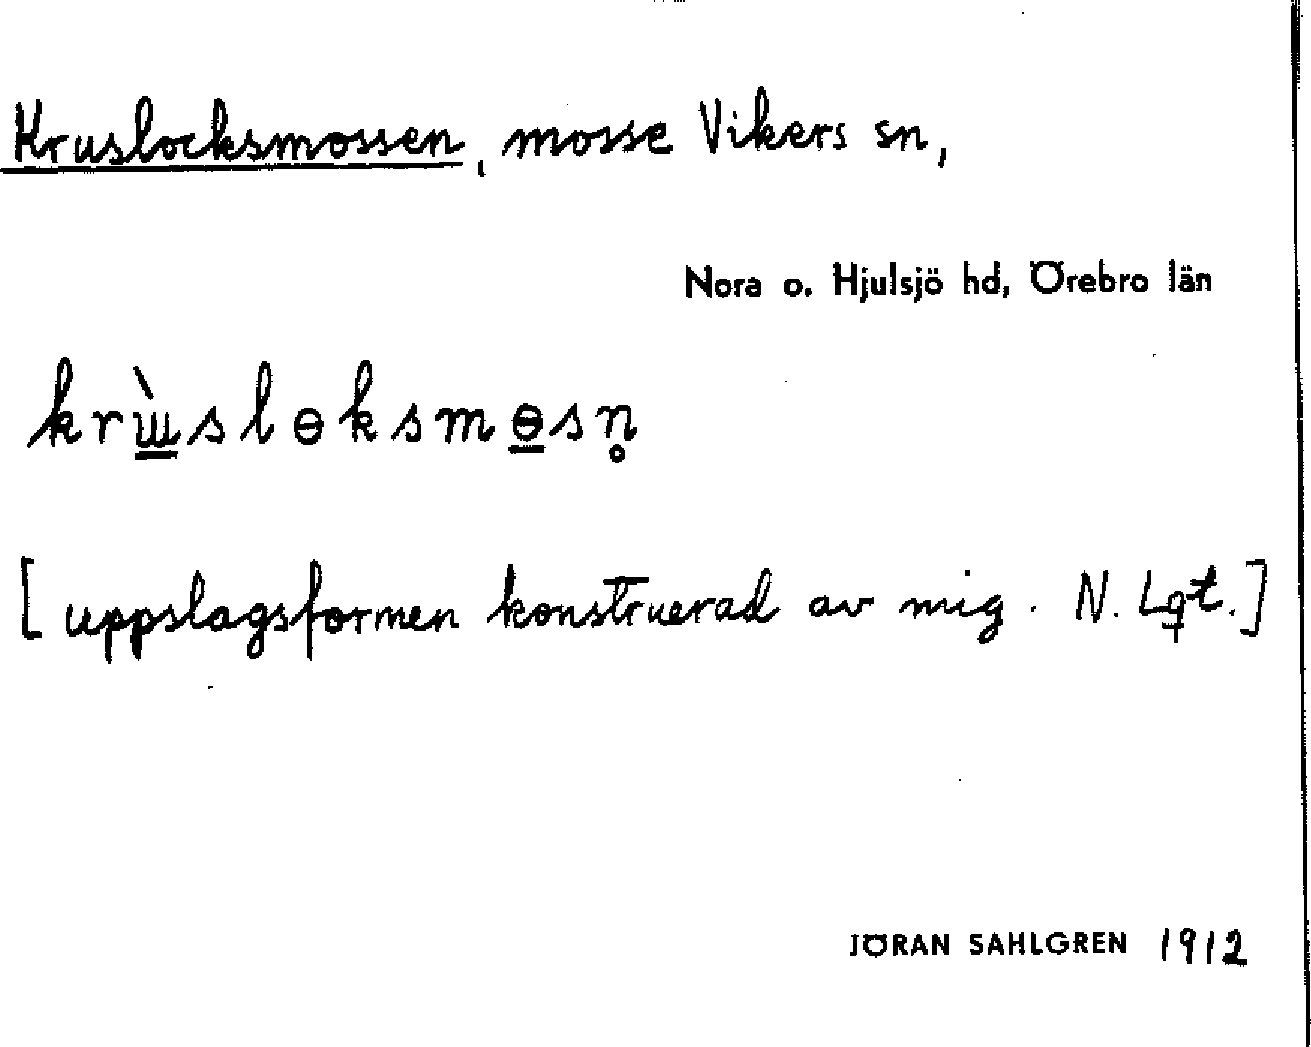 Kruslocksmossen, mosse Vikers sn,
Nora o. Hjulsjö hd, Örebro län
krɯ̳̀slɵksmɵ̲sn̥
[uppslagsformen konstruerad av mig. N. Lgt.]
JÖRAN SAHLGREN 1912